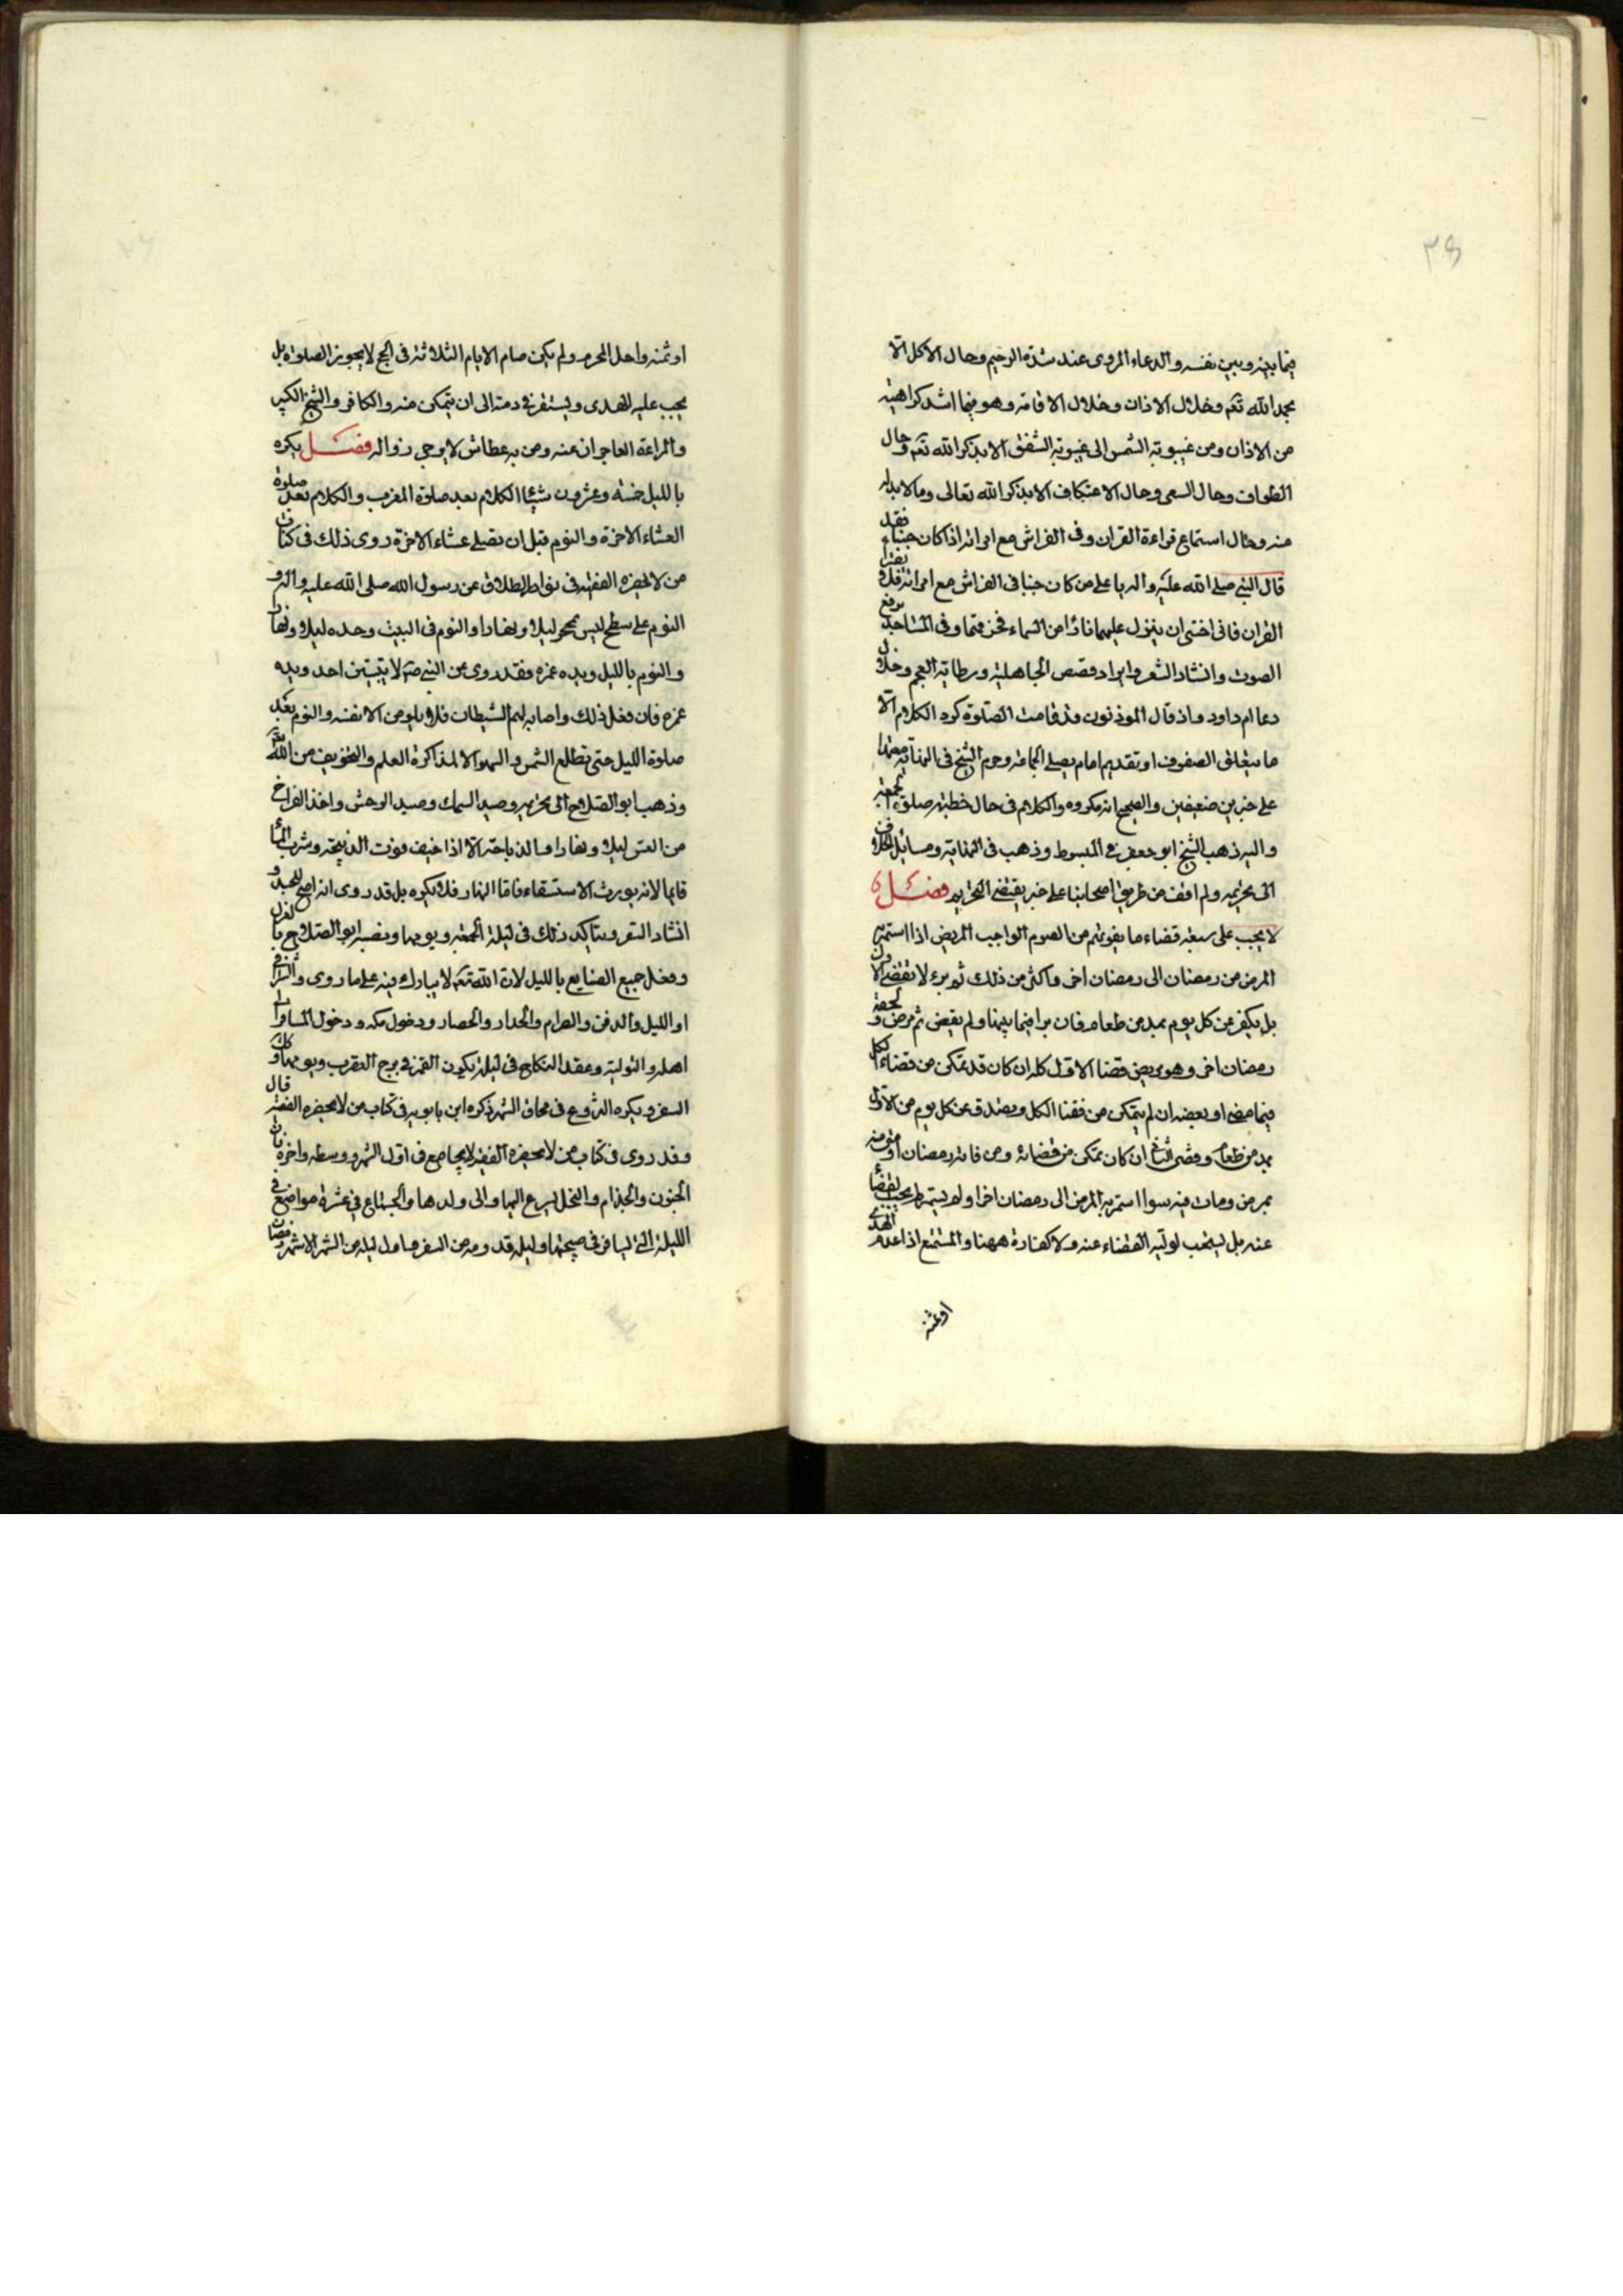 ٣٥
فيما بينه وبين نفسه والدعاء المروى عند شدة الرحيم وحال الاكل الا
بحمد الله تعم وخلال الاذان وخلال الاقامة وهو فيما اشد كراهية
من الاذان ومن غيبوبة الشمس الى غيبوبة الشفق الا بذكر الله تعم وحال
الطواف وحال السعى وحال الاعتكاف الا بذكر الله تعالى وما لا بد له
منه وحال استماع قراءة القران وفى الفراش مع امراته اذا كان جنبا فقد
قال النبى صلى الله عليه واله يا على من كان جنبا فى الفراش مع امراته فلا يقرا
القران فانى اخشى ان ينزل عليهما نارا من السماء فحرقتهما وفى المساجد برفع
الصوت وانشاد الشعر وايراد قصص الجاهلية ورطانة العجم وخلال
دعا ام داود واذ قال الموذنون قد قامت الصلوة كره الكلام الا
ما يتعلق الصفوف او تقديم امام يصلى الجماعة وحرم الشيخ فى النهاية معتمدا
على خبرين ضعيفين والصحيح انه مكروه والكلام فى حال خطبة صلوة الجمعة
واليه ذهب الشيخ ابو جعفر فى المبسوط وذهب فى النهاية ومسائل الخلاف
الى تحريمه ولم اقف من طريق اصحابنا على خبر يقتضى التحريم فصل
لا يجب على سبعة قضاء ما يفوتهم من الصوم الواجب المريض اذا استمر به
المرض من رمضان الى رمضان اخر واكثر من ذلك ثم برء لا يقضى الاول
بل يكفر عن كل يوم بمد من طعام فان برا فيما بينها ولم يقض ثم مرض ولحقه
رمضان اخر وهو مريض قضا الاول كله ان كان قد تمكن من قضاء الكل
فيما مضى او بعضه ان لم يتمكن من قضا الكل ويصدق عن كل يوم من الاول
بمد من طعام وقضى الثانى ان كان تمكن من قضائه ومن فاته رمضان او شى منه
بمرض ومات فيه سوا استمر به المرض الى رمضان اخر او لم يستمر لم يجب القضا
عنه بل يستحب لوليه القضاء عنه ولا كفارة ههنا والمتمتع اذا عدم الهدى
او ثمنه
او ثمنه واحل المحرم ولم يكن صام الايام الثلاثة فى الحج لا يجوز الصلوة بل
يجب عليه الهدى ويستقر فى ذمته الى ان يتمكن منه والكافر والشيخ الكبير
والمراءة العاجزان عنه ومن به عطاش لا يرجى زواله فصل يكره
بالليل خمسة وعشرون شيئا الكلام بعد صلوة المغرب والكلام بعد صلوة
العشاء الاخرة والنوم قبل ان يصلى عشاء الاخرة روى ذلك فى كتاب
من لا يحضره الفقيه فى نوادر الطلاق عن رسول الله صلى الله عليه واله و
النوم على سطح ليس بمحجر ليلا ونهارا والنوم فى البيت وحده ليلا ونهارا
والنوم بالليل ويده غمره فقد روى عن النبى صم لا يبيتن احد ويده
غمره فان فعل ذلك واصابه لمم الشيطان فلا يلومن الا نفسه والنوم بعد
صلوة الليل حتى تطلع الشمس والسهو الا لمذاكرة العلم والتخويف من الله تعم
وذهب ابو الصلاح الى تحريمه وصيد السمك وصيد الوحش واخذ الفراخ
من العش ليلا ونهارا والذباحة الا اذا خيف فوت الذبيحة وشرب الماء
قايما لانه يورث الاستسقاء فاما النهار فلا يكره بل قد روى انه اصح للجسد و
انشاد الشعر ويتاكد ذلك فى ليلة الجمعة ويومها ونفسه ابو الصلاح بالغزل
وفعل جميع الصنايع بالليل لان الله تعم لا يبارك فيه على ما روى والشرا فى
اول الليل والدفن والصرام والجداد والحصاد ودخول مكه ودخول المسافر الى
اهله والتولية وعقد النكاح فى ليلة يكون القمر فى برج العقرب ويومها وكذلك
السفر ويكره التزوج فى محاق الشهر ذكره ابن بابويه فى كتاب من لا يحضره الفقيه قال
وقد روى فى كتاب من لا يحضره الفقيه لا يجامع فى اول الشهر ووسطه واخره فان
الجنون والجذام والخبل يسرع اليها والى ولدها والجماع فى عشرة مواضع فى
الليلة التى يسافر فى صبيحتها وليلة قدومه من السفر واول ليلة من الشهر الا شهر رمضان